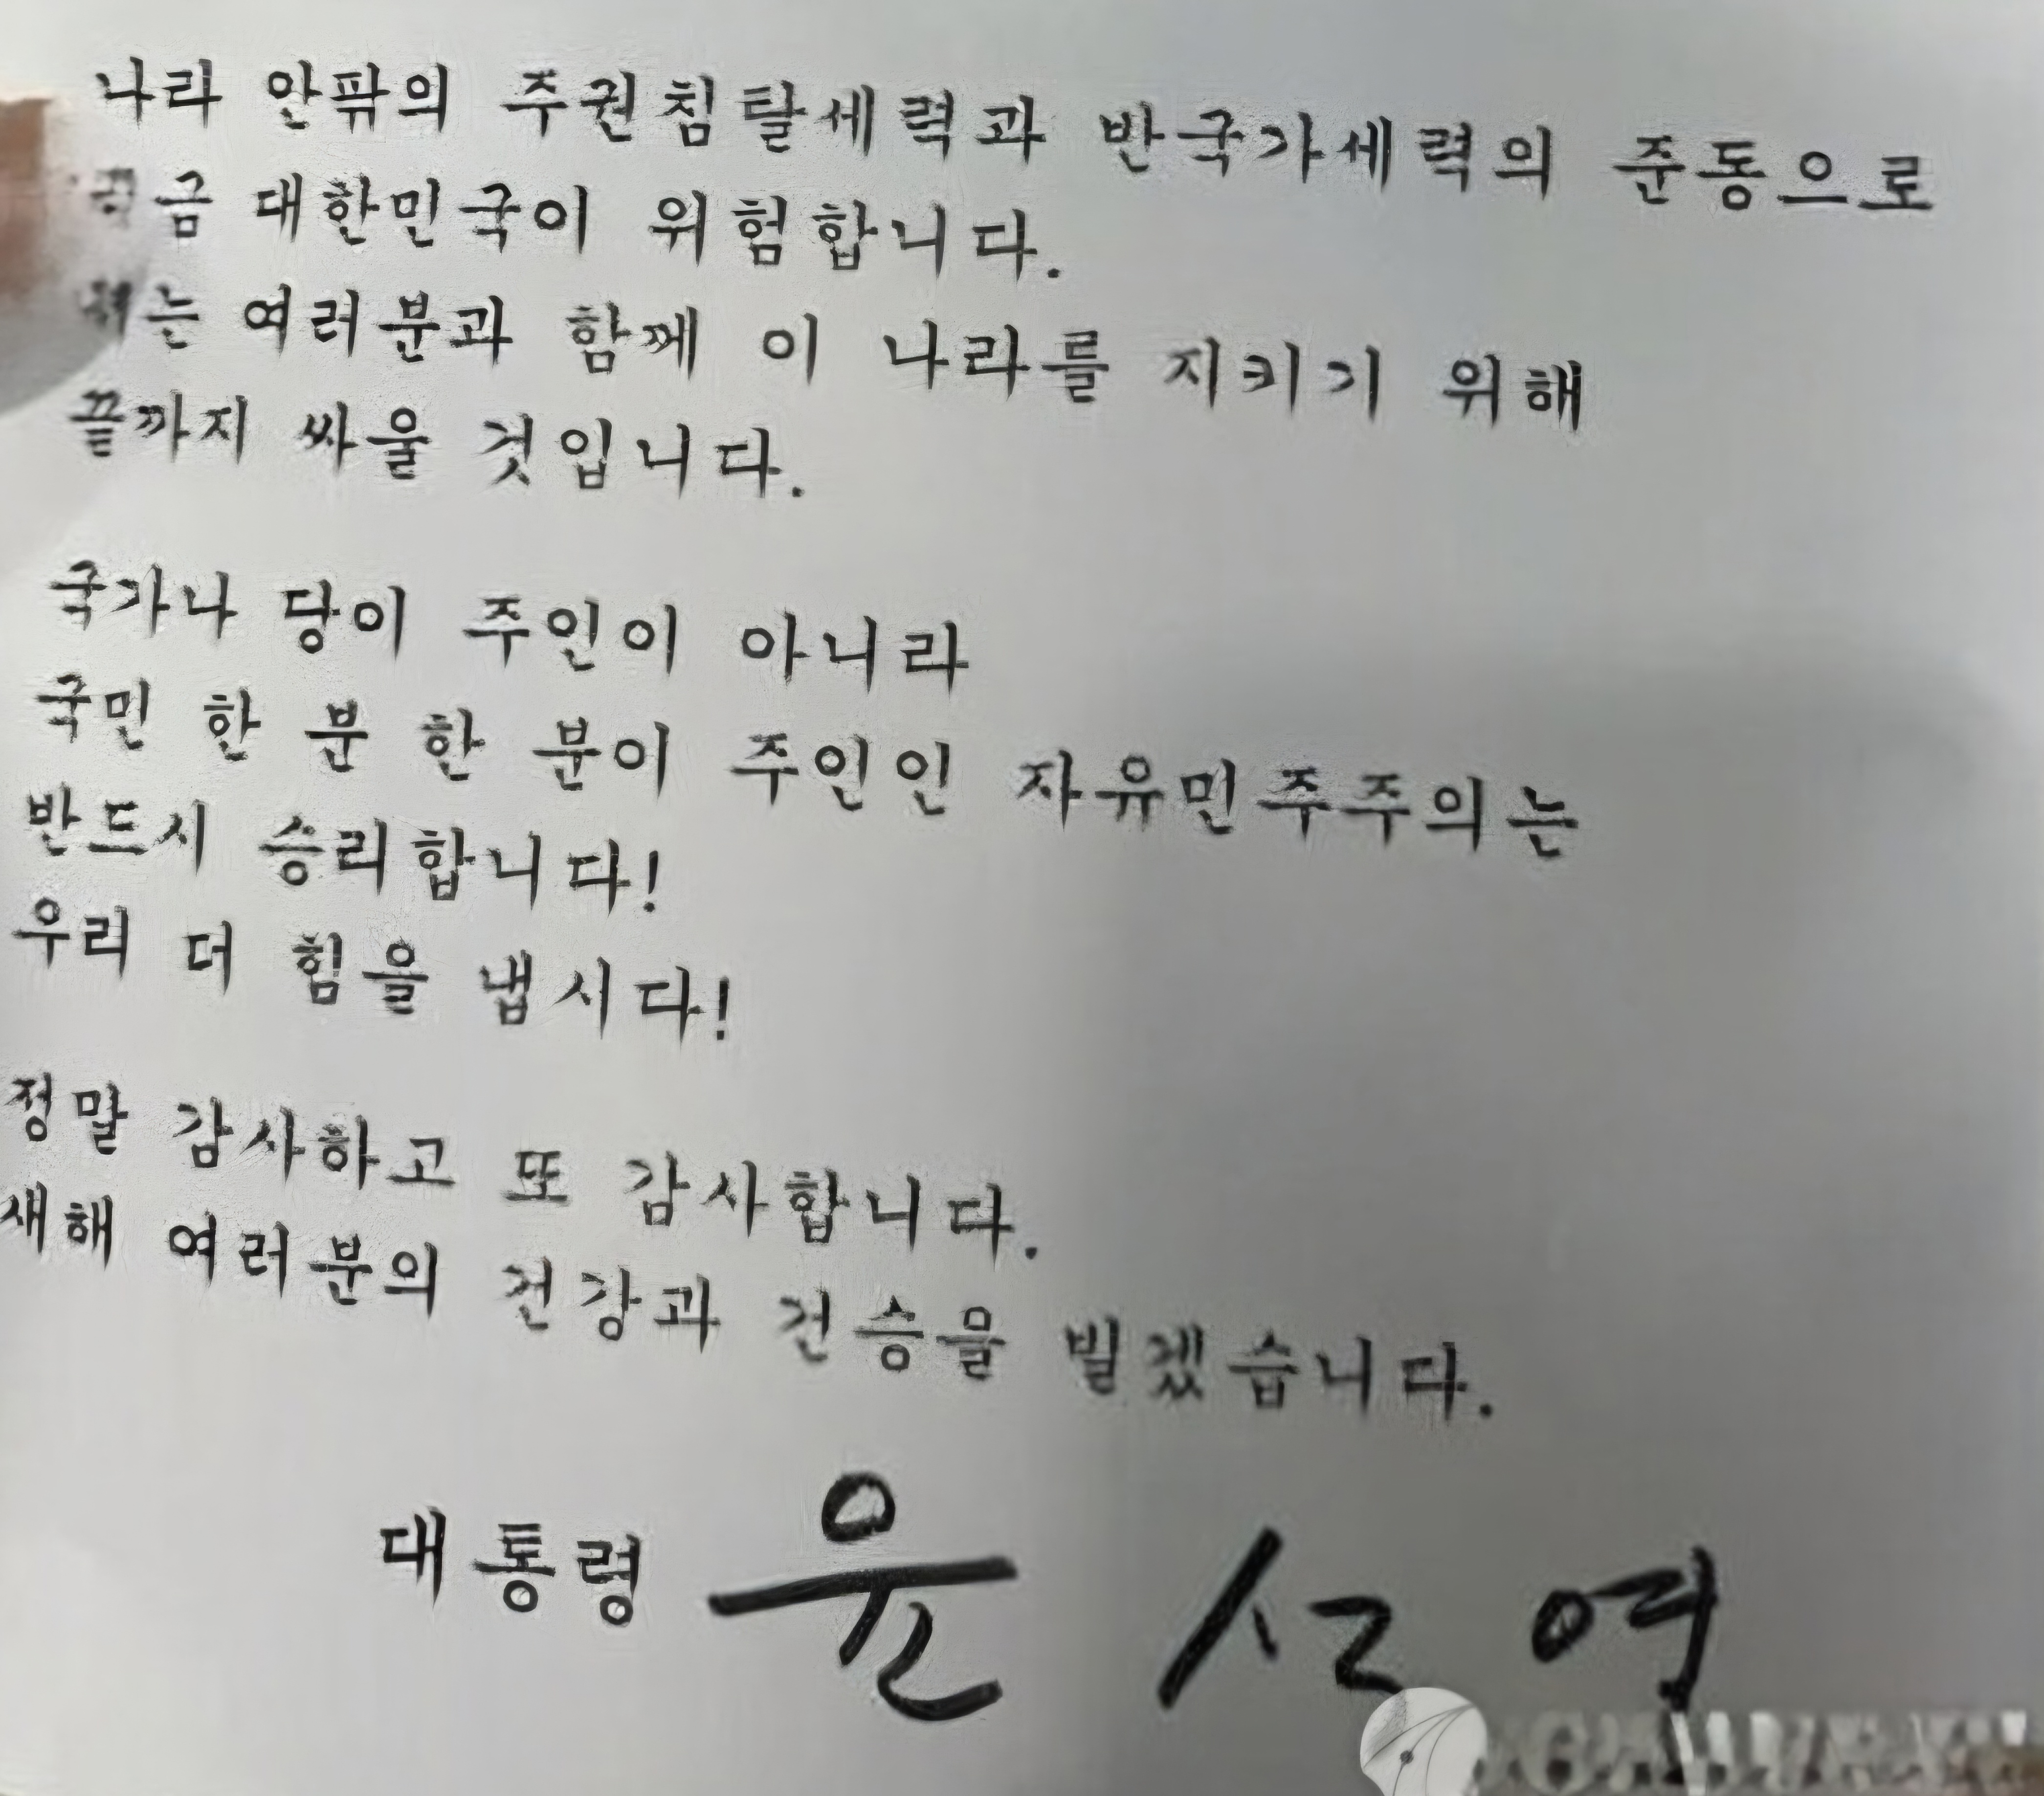 나라 안팎의 주권침탈세력과 반국가세력의 준동으로
지금 대한민국이 위험합니다.
저는 여러분과 함께 이 나라를 지키기 위해
끝까지 싸울 것입니다.
국가나 당이 주인이 아니라
국민 한 분 한 분이 주인인 자유민주주의는
반드시 승리합니다!
우리 더 힘을 냅시다!
정말 감사하고 또 감사합니다.
새해 여러분의 건강과 건승을 빌겠습니다.
대통령 윤 석 열